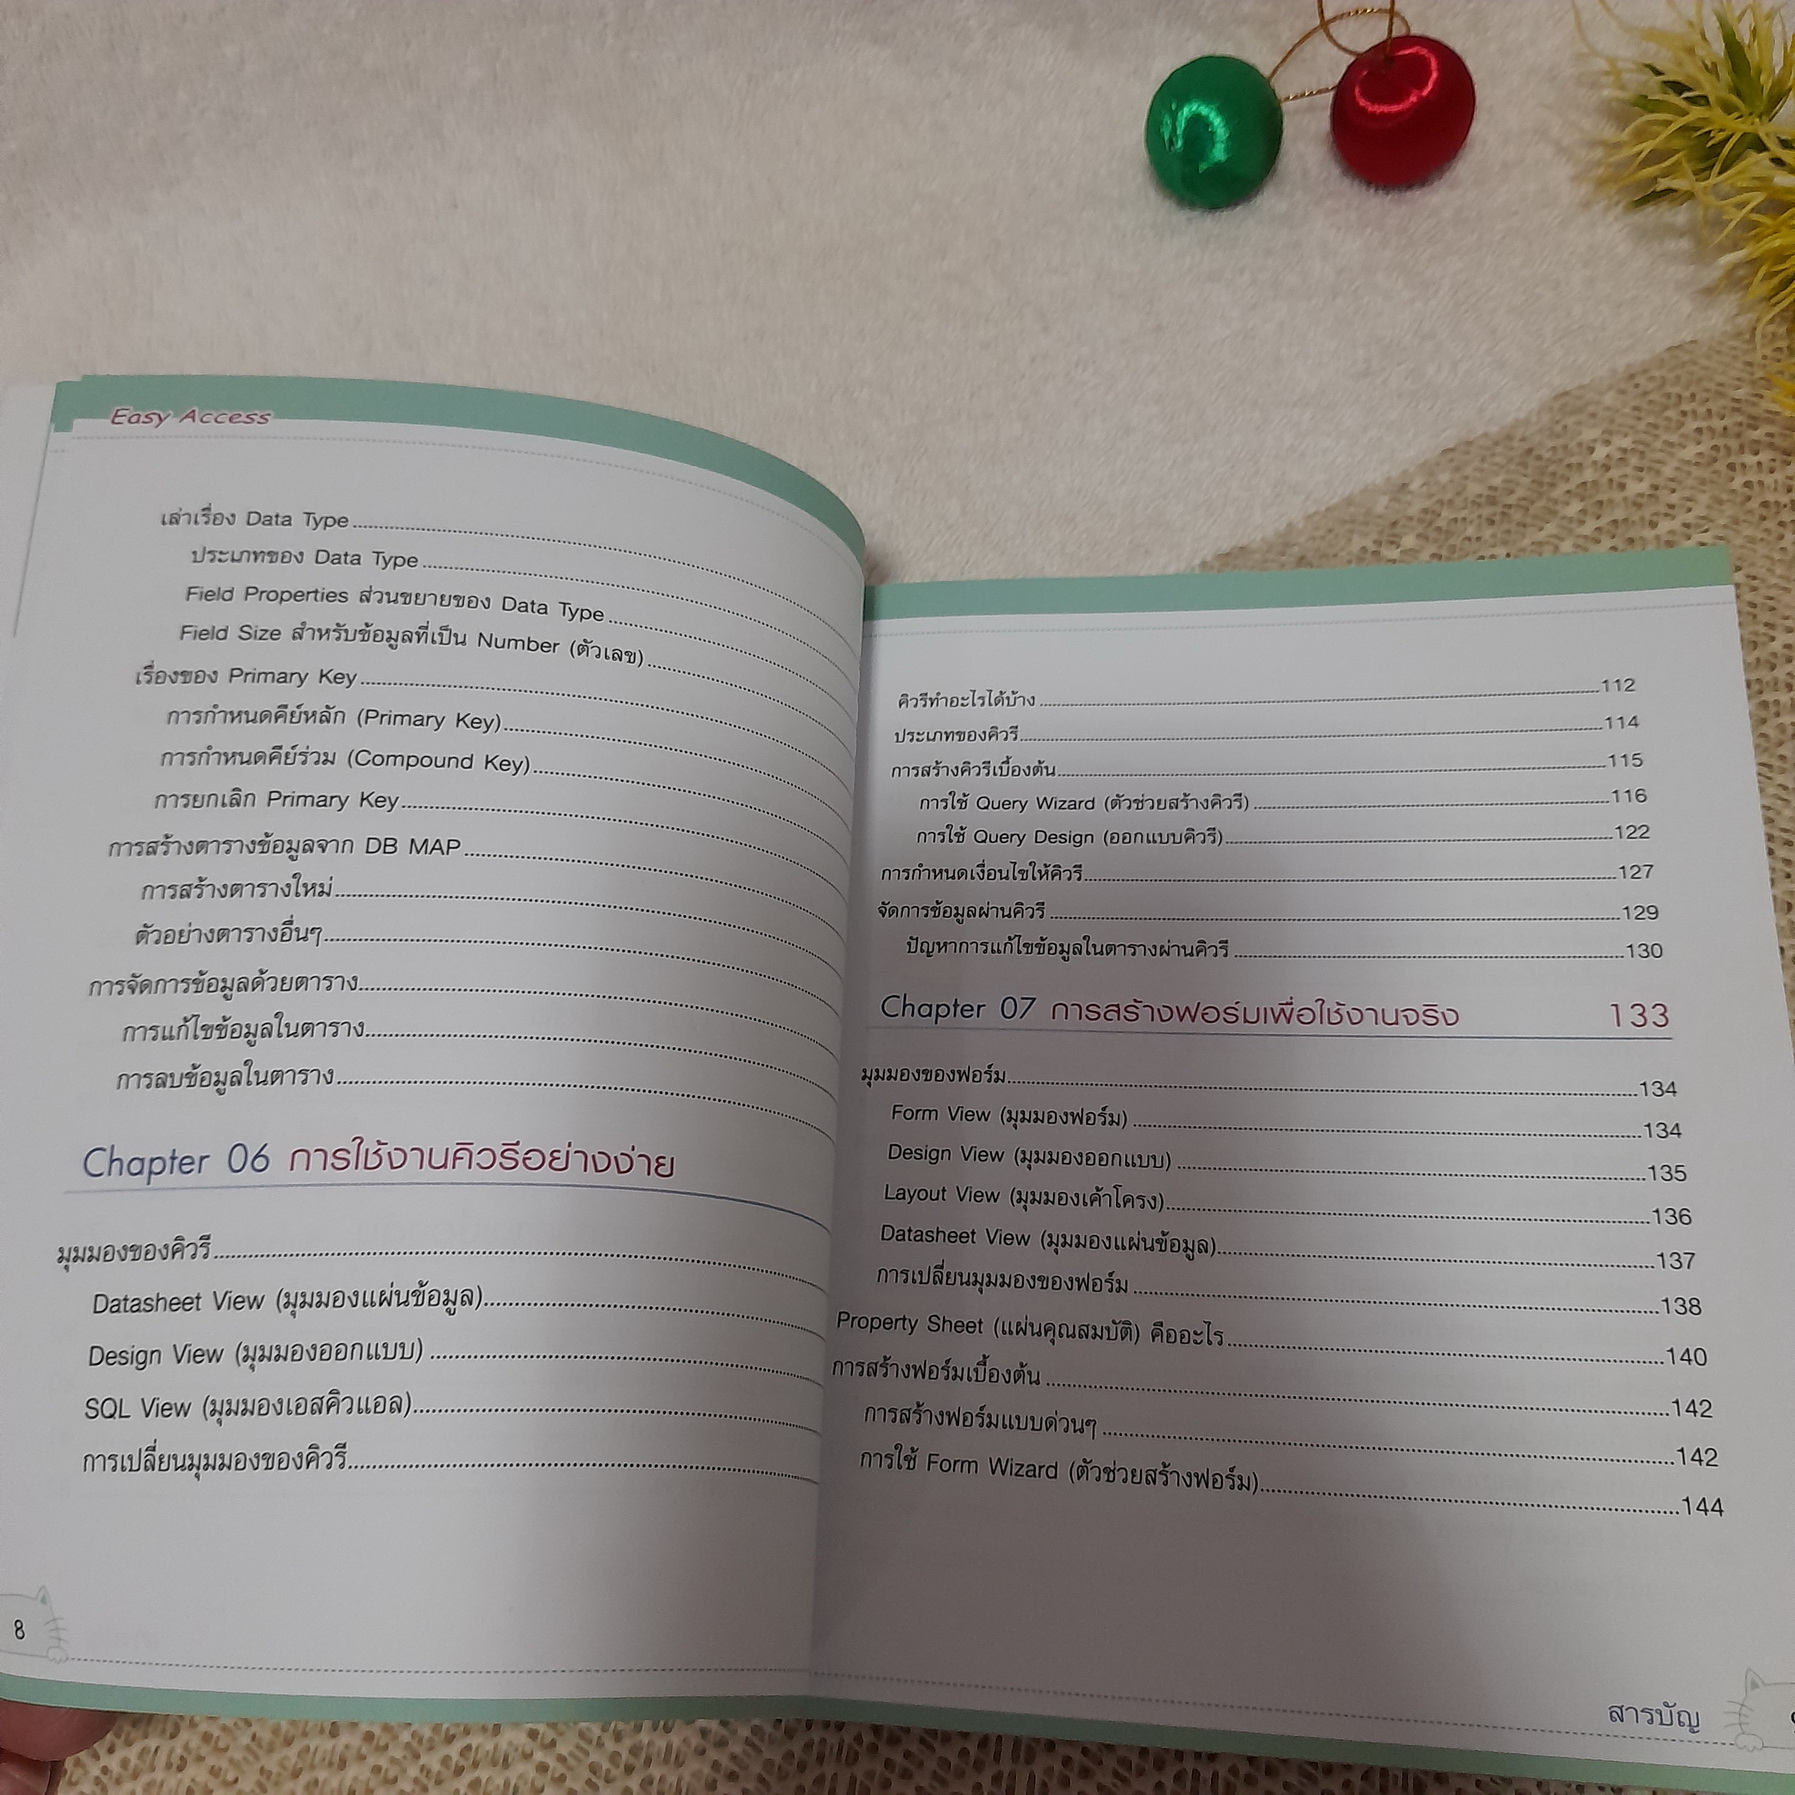 Easy Access
เล่าเรื่อง Data Type
ประเภทของ Data Type
Field Properties ส่วนขยายของ Data Type
Field Size สำหรับข้อมูลที่เป็น Number (ตัวเลข)
เรื่องของ Primary Key
การกำหนดคีย์หลัก (Primary Key)
การกำหนดคีย์ร่วม (Compound Key)
การยกเลิก Primary Key
การสร้างตารางข้อมูลจาก DB MAP
การสร้างตารางใหม่
ตัวอย่างตารางอื่นๆ
การจัดการข้อมูลด้วยตาราง
การแก้ไขข้อมูลในตาราง
การลบข้อมูลในตาราง
Chapter 06 การใช้งานคิวรีอย่างง่าย
มุมมองของคิวรี
Datasheet View (มุมมองแผ่นข้อมูล)
Design View (มุมมองออกแบบ)
SQL View (มุมมองเอสคิวแอล)
การเปลี่ยนมุมมองของคิวรี
8
คิวรีทำอะไรได้บ้าง 112
ประเภทของคิวรี 114
การสร้างคิวรีเบื้องต้น 115
การใช้ Query Wizard (ตัวช่วยสร้างคิวรี) 116
การใช้ Query Design (ออกแบบคิวรี) 122
การกำหนดเงื่อนไขให้คิวรี 127
จัดการข้อมูลผ่านคิวรี 129
ปัญหาการแก้ไขข้อมูลในตารางผ่านคิวรี 130
Chapter 07 การสร้างฟอร์มเพื่อใช้งานจริง 133
มุมมองของฟอร์ม 134
Form View (มุมมองฟอร์ม) 134
Design View (มุมมองออกแบบ) 135
Layout View (มุมมองเค้าโครง) 136
Datasheet View (มุมมองแผ่นข้อมูล) 137
การเปลี่ยนมุมมองของฟอร์ม 138
Property Sheet (แผ่นคุณสมบัติ) คืออะไร 140
การสร้างฟอร์มเบื้องต้น 142
การสร้างฟอร์มแบบด่วนๆ 142
การใช้ Form Wizard (ตัวช่วยสร้างฟอร์ม) 144
สารบัญ